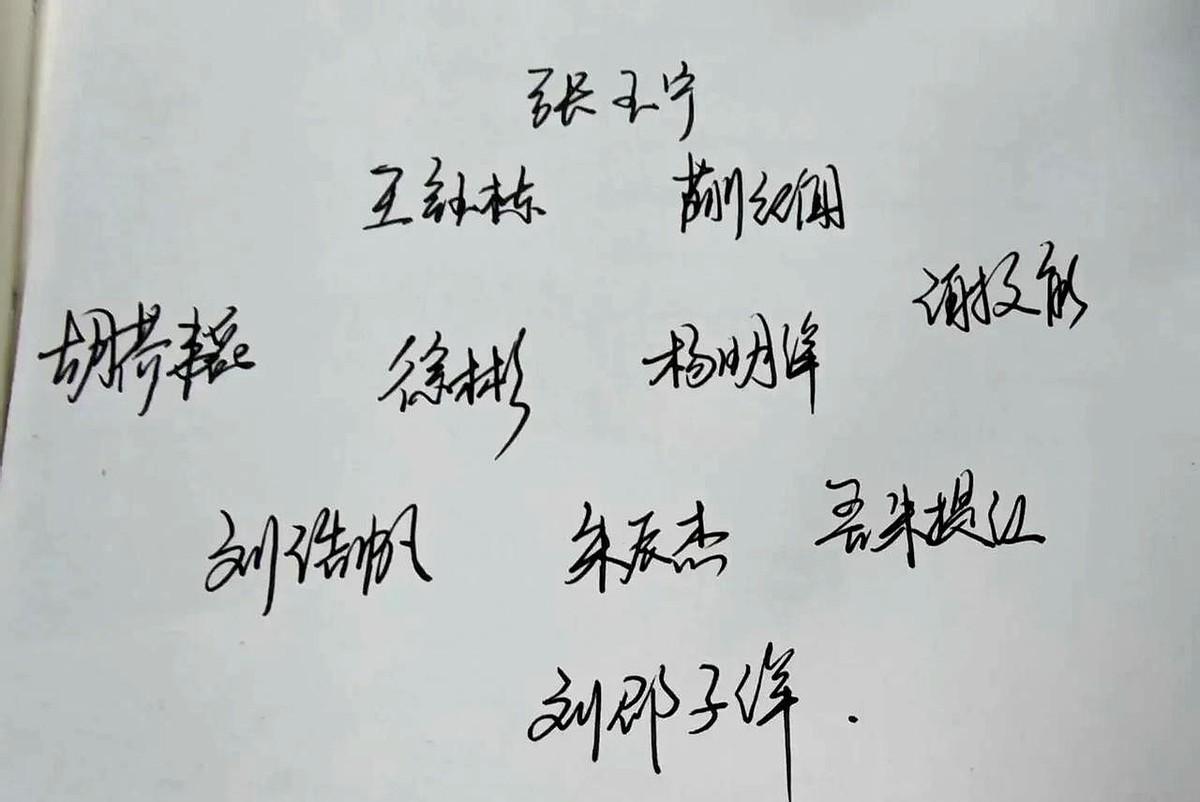 张玉宁
王钰栋 蒯纪闻
谢文能
胡荷韬 徐彬 杨明洋
刘浩帆 朱辰杰 吾米提江
刘邵子洋.